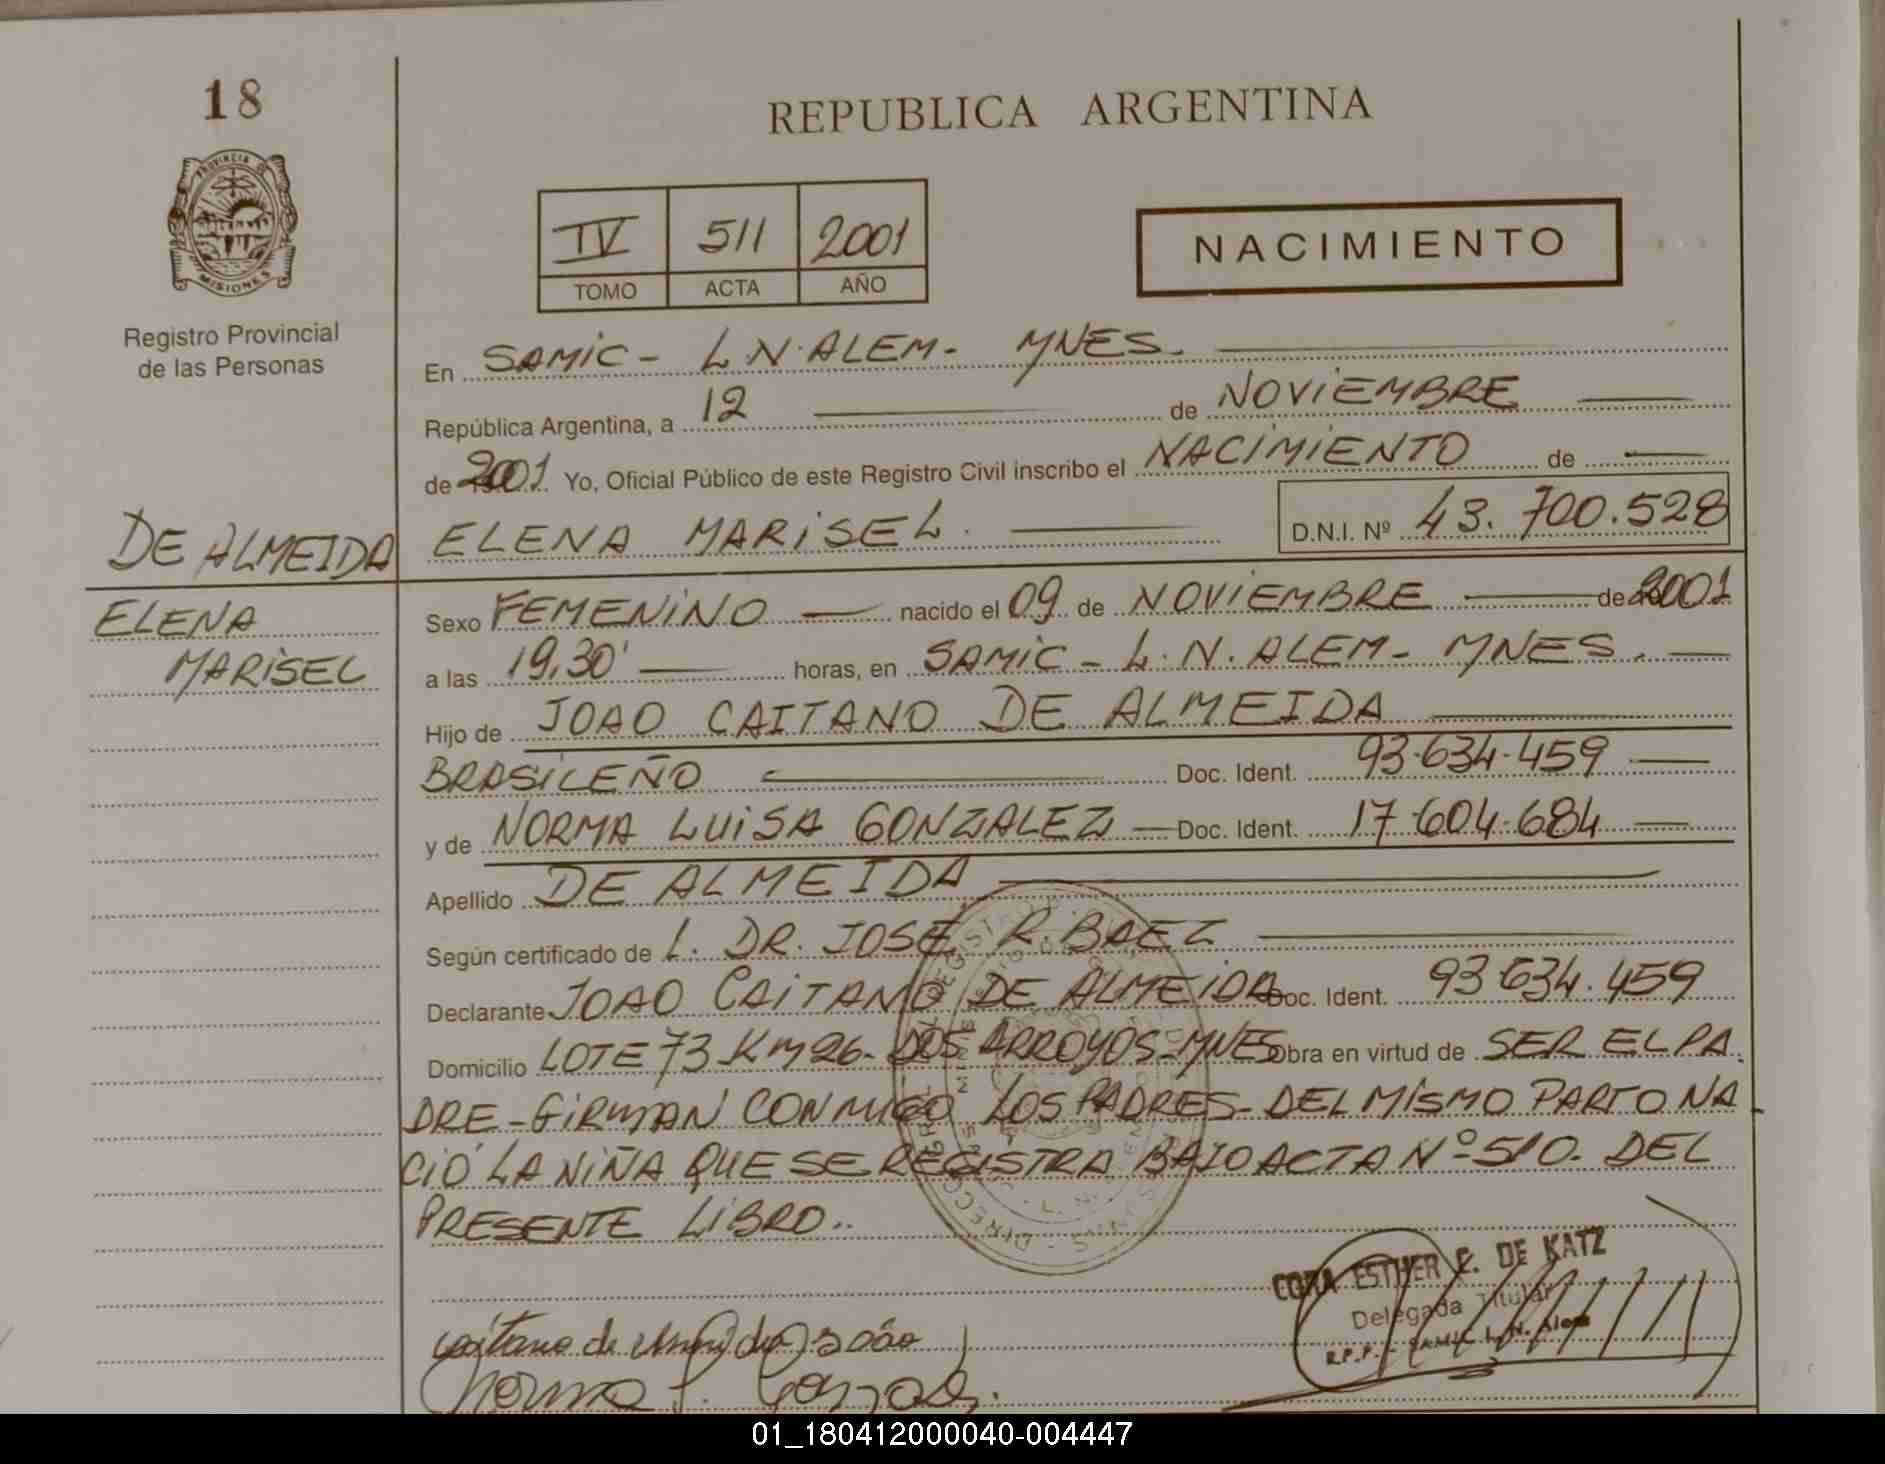 18
PROVINCIA DE
MISIONES
Registro Provincial
de las Personas
DE ALMEIDA
ELENA
MARISEL
REPUBLICA ARGENTINA
IV 511 2001
TOMO ACTA AÑO
NACIMIENTO
En SAMIC - L.N. ALEM - MNES.
República Argentina, a 12 de NOVIEMBRE
de 2001 Yo, Oficial Público de este Registro Civil inscribo el NACIMIENTO de
ELENA MARISEL. D.N.I. Nº 43.700.528
Sexo FEMENINO nacido el 09 de NOVIEMBRE de 2001
a las 19,30' horas, en SAMIC - L.N. ALEM - MNES.
Hijo de JOAO CAITANO DE ALMEIDA
BRASILEÑO Doc. Ident. 93.634.459
y de NORMA LUISA GONZALEZ Doc. Ident. 17.604.684
Apellido DE ALMEIDA
Según certificado de L. DR. JOSE R. BAEZ
Declarante JOAO CAITANO DE ALMEIDA Doc. Ident. 93.634.459
Domicilio LOTE 73 KM 26 - DOS ARROYOS - MNES Obra en virtud de SER EL PA
DRE - FIRMAN CONMIGO LOS PADRES - DEL MISMO PARTO NA
CIÓ LA NIÑA QUE SE REGISTRA BAJO ACTA Nº 510. DEL
PRESENTE LIBRO..
CORA ESTHER C. DE KATZ
Delegada Titular
R.P.P. - SAMIC L. N. Alem
01_180412000040-004447